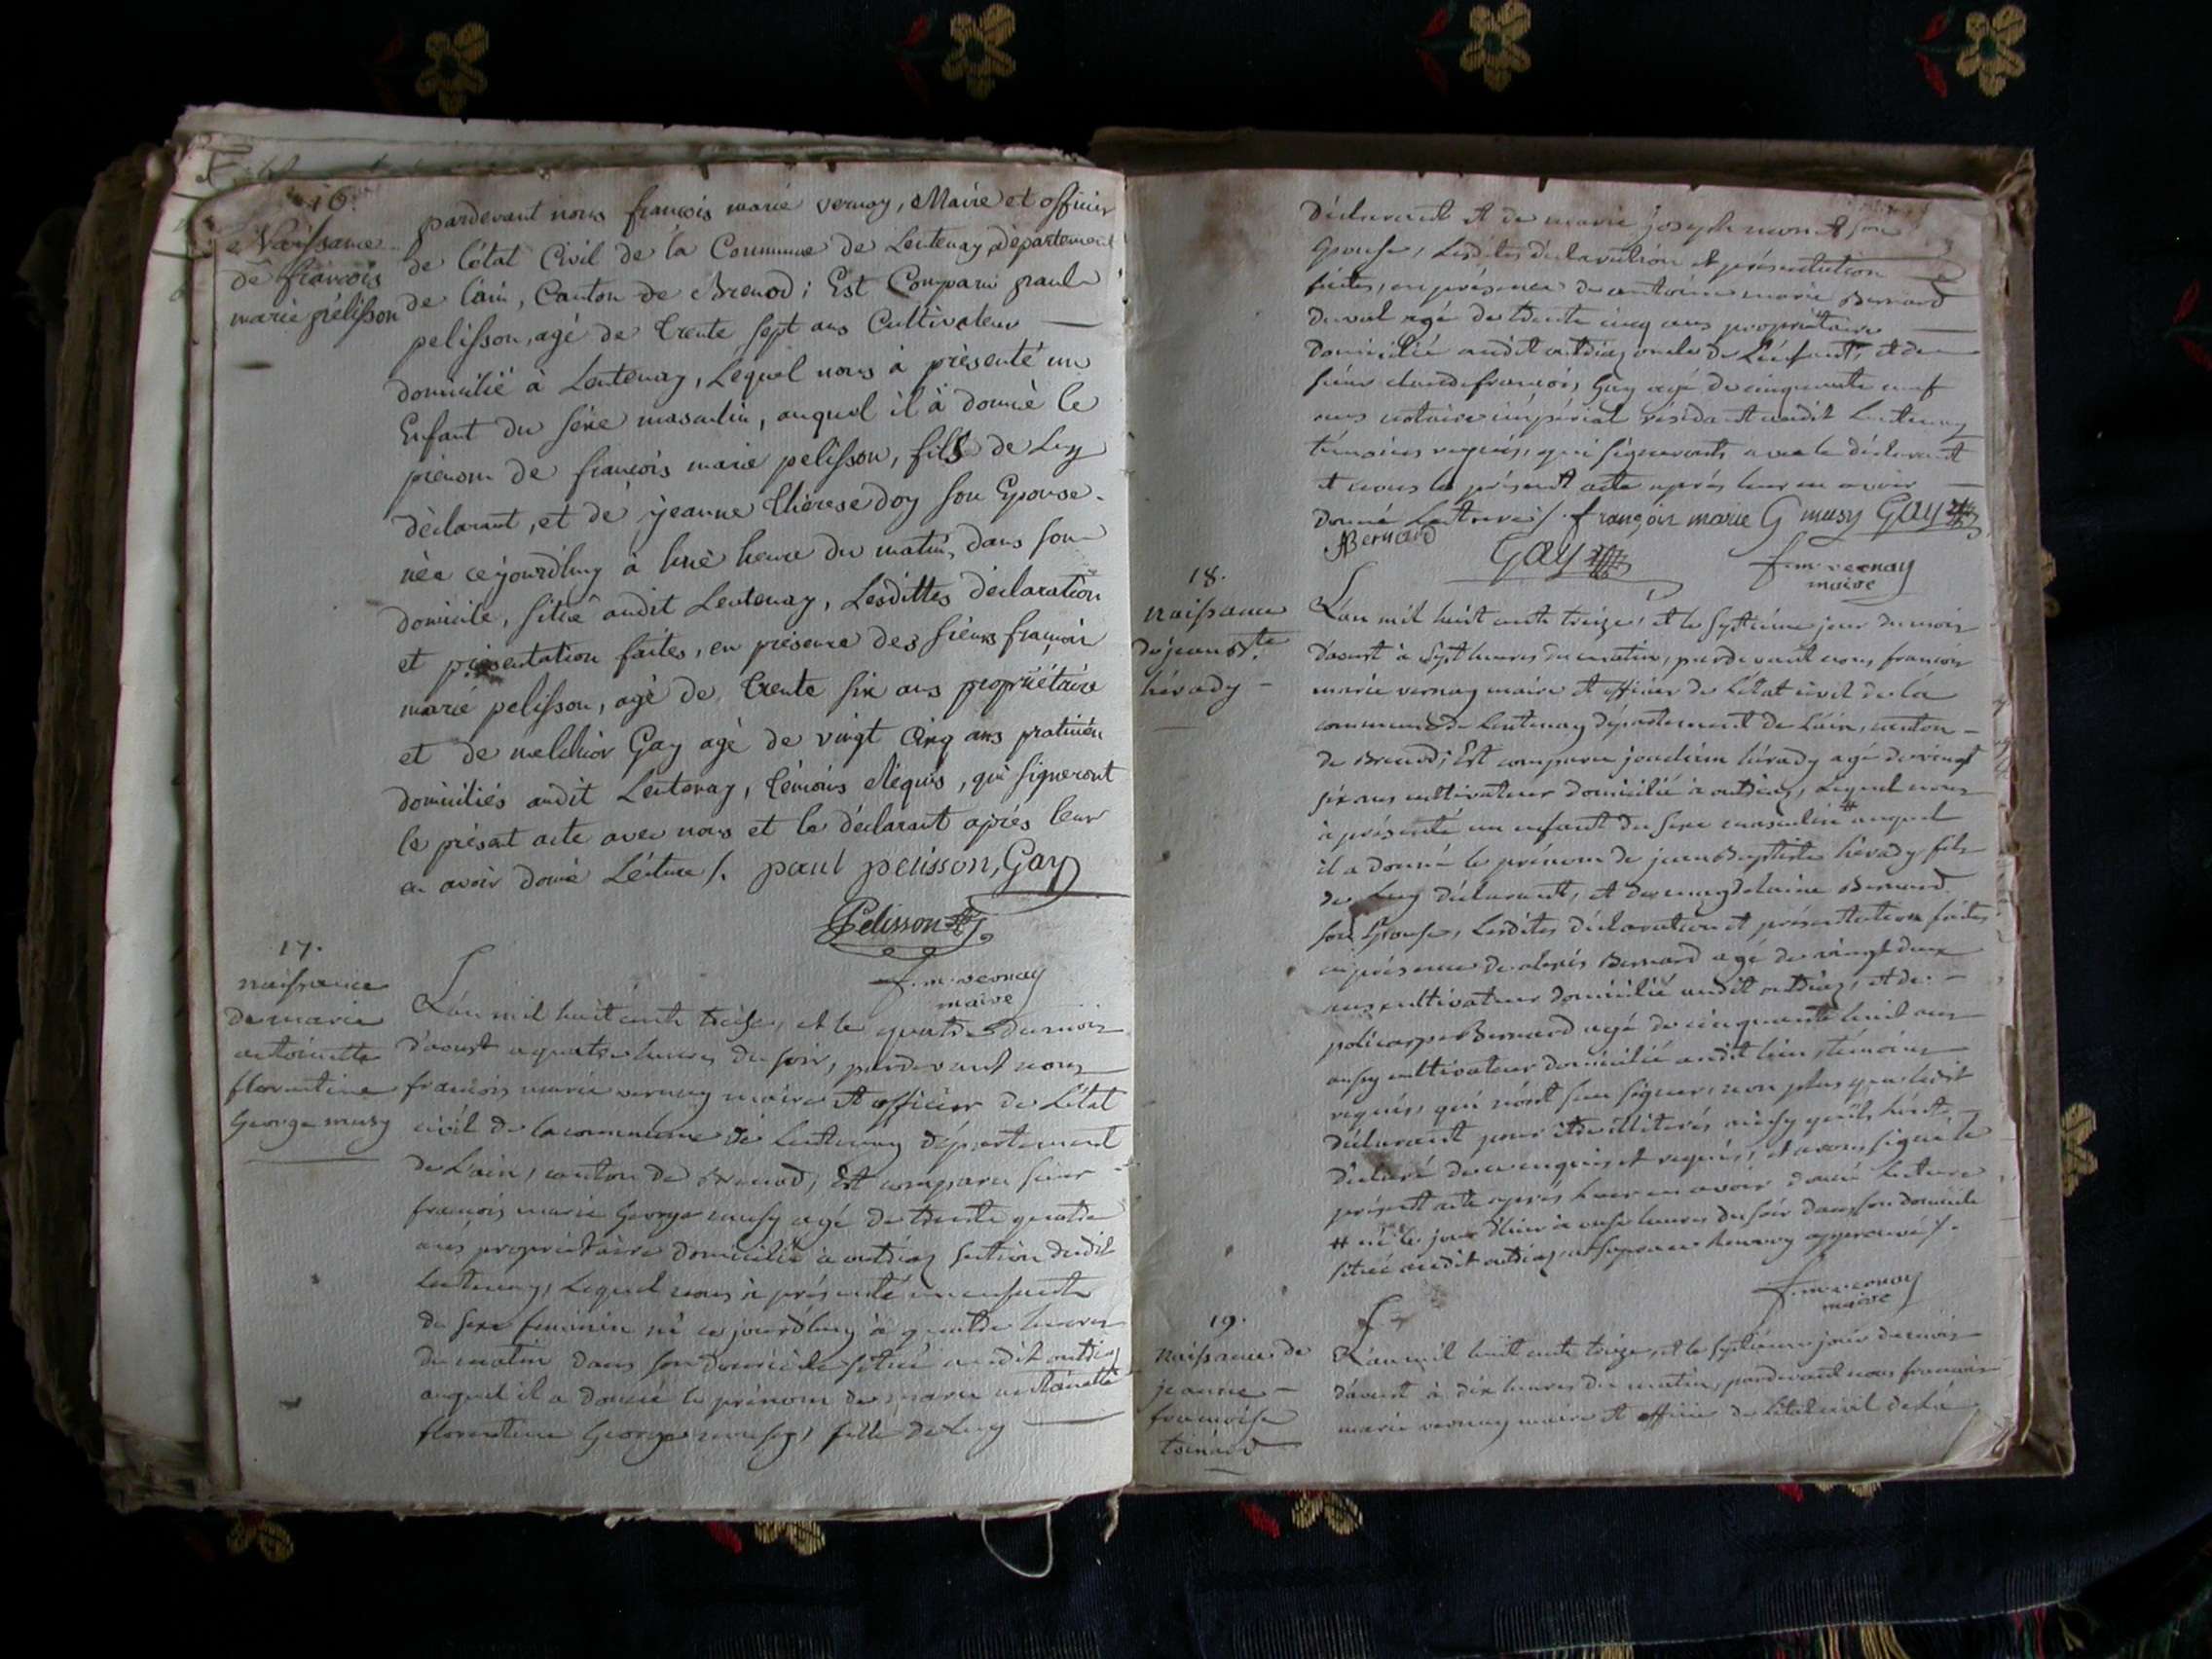 16.
Naissance
de francois
marie pélisson
pardevant nous francois marie vernay, Maire et officier
de l'état Civil de la Commune de Lentenay, département
de l'ain, Canton de Brenod; Est Comparu paul
pelisson, agé de trente sept ans Cultivateur
domicilié à Lentenay, Lequel nous à présenté un
Enfant du séxe masculin, auquel il à donné le
prénom de francois marie pelisson, fils de Luy
déclarant, et de jeanne thérese doy son Epouse
née cejourdhuy à heure du matin, dans son
domicile, situé audit Lentenay, Lesdittes déclaration
et présentation faites, en présence des sieurs francois
marie pelisson, agé de trente six ans propriétaire
et de melchior Gay agé de vingt Cinq ans praticien
domiciliés audit Lentenay, témoins Réquis, qui signeront
le présent acte avec nous et le déclarant après leur
en avoir donné Lecture /. paul pelisson, Gay
Pelisson
f. m. vernay
maire
17.
naissance
de marie
antoinette
florentine
George musy
L'an mil huit cent treize, et le quatre du mois
d'aoust a quatre heures du soir, pardevant nous
francois marie vernay maire et officier de l'état
civil de la commune de Lentenay département
de L'ain, canton de Brenod, Est comparu sieur
francois marie George musy agé de trente quatre
ans propriétaire domicilié à outriaz section dudit
Lentenay, Lequel nous à présenté un enfant
du sexe feminin né cejourdhuy à quatre heures
du matin dans son domicile situé audit outriaz
auquel il a donné le prénom de marie antoinette
florentine George musy, fille de Luy
déclarant et de marie joseph son
Epouse, Lesdites déclaration et présentation
faites, en présence de antoine marie Bernard
duval agé de trente cinq ans propriétaire
domicilié audit outriaz oncle de L'enfant, et de
sieur claude francois Gay agé de cinquante neuf
ans notaire impérial résidant audit Lentenay
témoins requis, qui signeronts avec le déclarant
et nous le présent acte après leur en avoir
donné Lecture /. françois marie G musy Gay
Bernard
Gay
f. m. vernay
maire
18.
naissance
de jean Bte
hérady
L'an mil huit cent treize, et le septième jour du mois
d'aoust à sept heures du matin, pardevant nous francois
marie vernay maire et officier de L'état civil de la
commune de Lentenay département de L'ain, canton
de Brenod; Est comparu joachim hérady agé de vingt
six ans cultivateur domicilié à outriaz, Lequel nous
à présenté un enfant du sexe masculin # auquel
il a donné le prénom de jean Baptiste hérady fils
de Luy déclarant, et de magdelaine Bernard
son Epouse, Lesdites déclaration et présentation faites
en présence de alexis Bernard agé de vingt deux
ans cultivateur domicilié audit outriaz, et de
policarpe Bernard agé de cinquante huit ans
aussy cultivateur domicilié audit lieu, témoins
requis, qui n'ont sçu signer, non plus que ledit
déclarant pour etre illiterés ainsy qu'ils l'ont
déclaré de ce enquis et requis, et avons signé le
présent acte après leur en avoir donné Lecture
# né le jour d'hier à onze heures du soir dans son domicile
situé audit outriaz renvoy approuvé /.
f. m. vernay
maire
19.
naissance de
jeanne
francoise
L'an mil huit cent treize, et le septième jour du mois
d'aoust à dix heures du matin, pardevant nous francois
marie vernay maire et officier de L'état civil de la